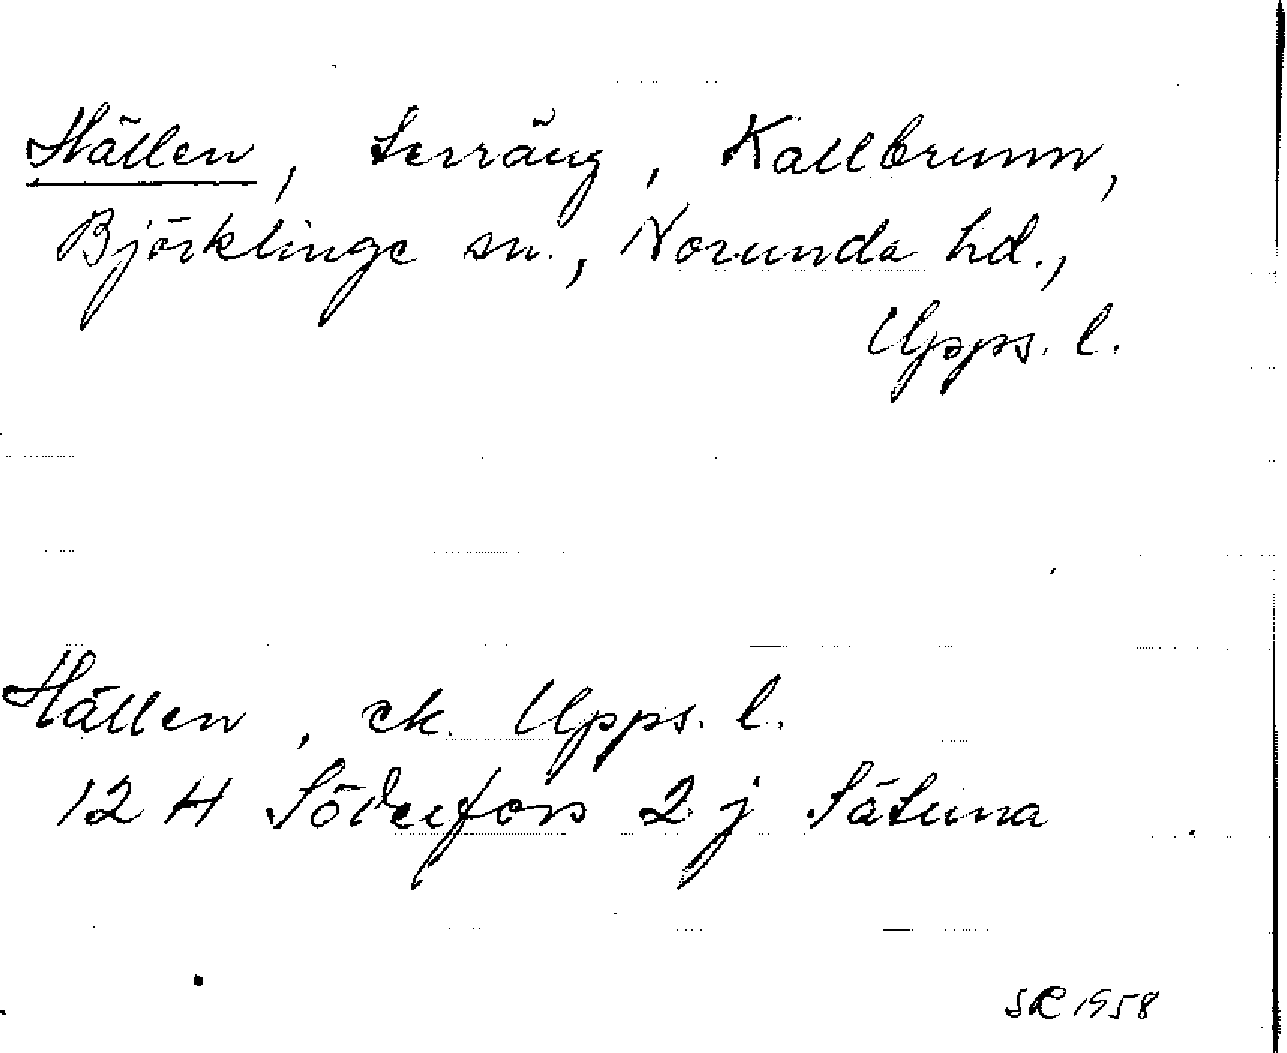 Hällen, terräng, Kallbrunn,
Björklinge sn., Norunda hd.,
Upps. l.
Hällen, ek. Upps. l.
12 H Söderfors 2 j Sätuna
SR 1958